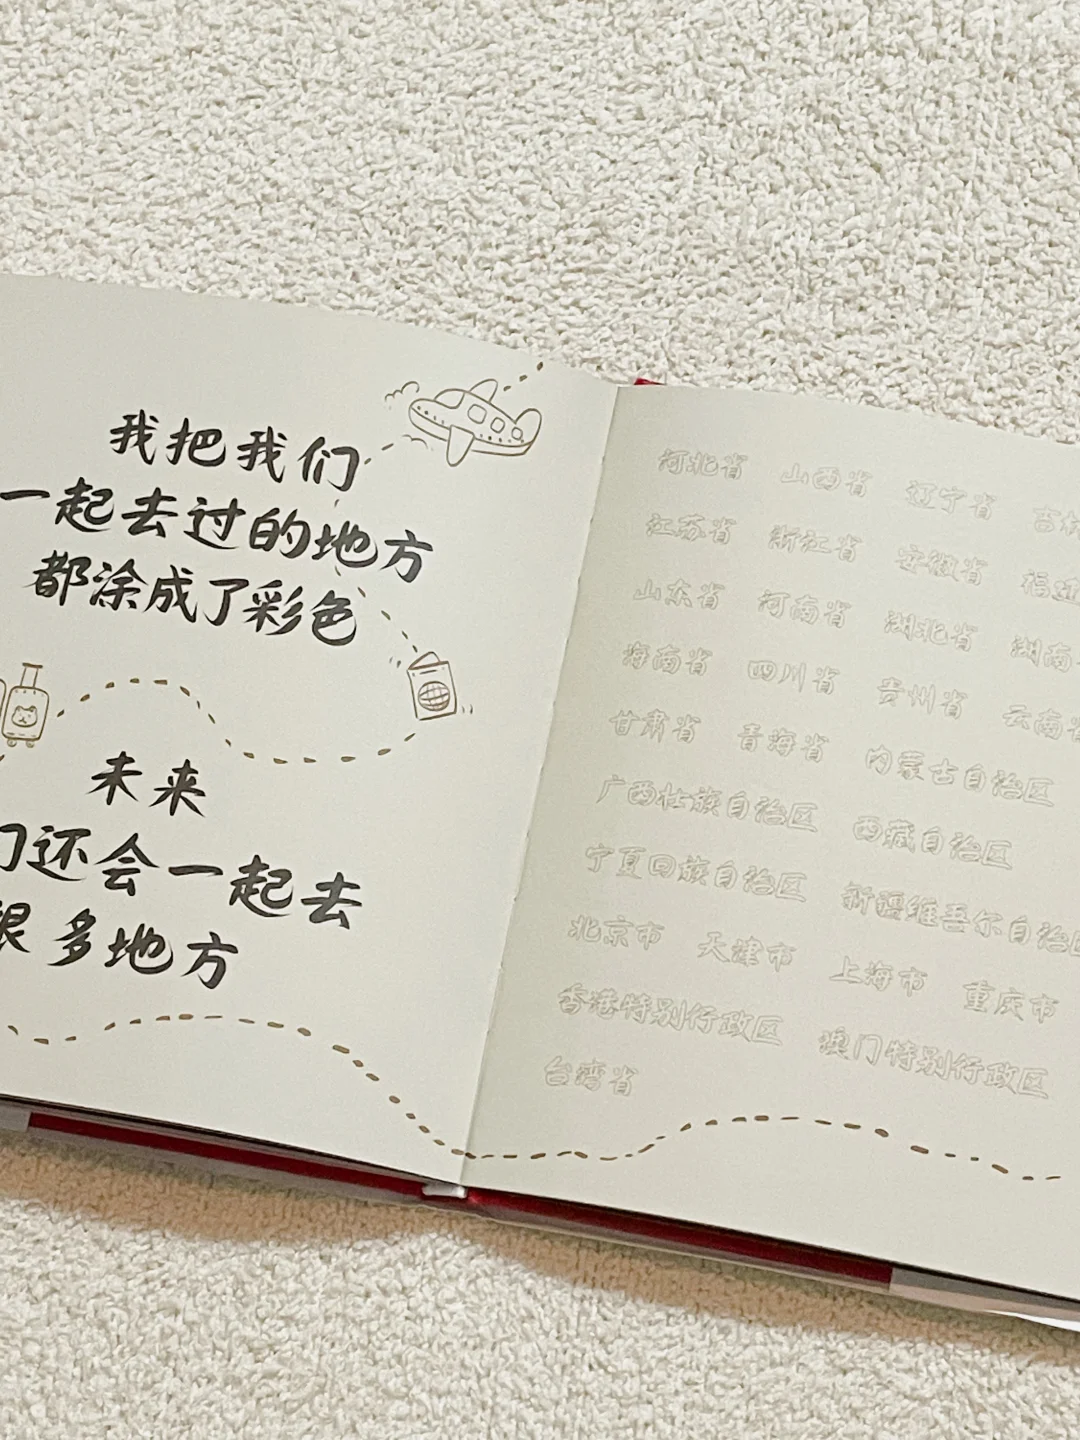 我把我们
一起去过的地方
都涂成了彩色
未来
们还会一起去
很多地方
河北省 山西省 辽宁省 吉林
江苏省 浙江省 安徽省 福建
山东省 河南省 湖北省 湖南
海南省 四川省 贵州省 云南省
甘肃省 青海省 内蒙古自治区
广西壮族自治区 西藏自治区
宁夏回族自治区 新疆维吾尔自治区
北京市 天津市 上海市 重庆市
香港特别行政区 澳门特别行政区
台湾省